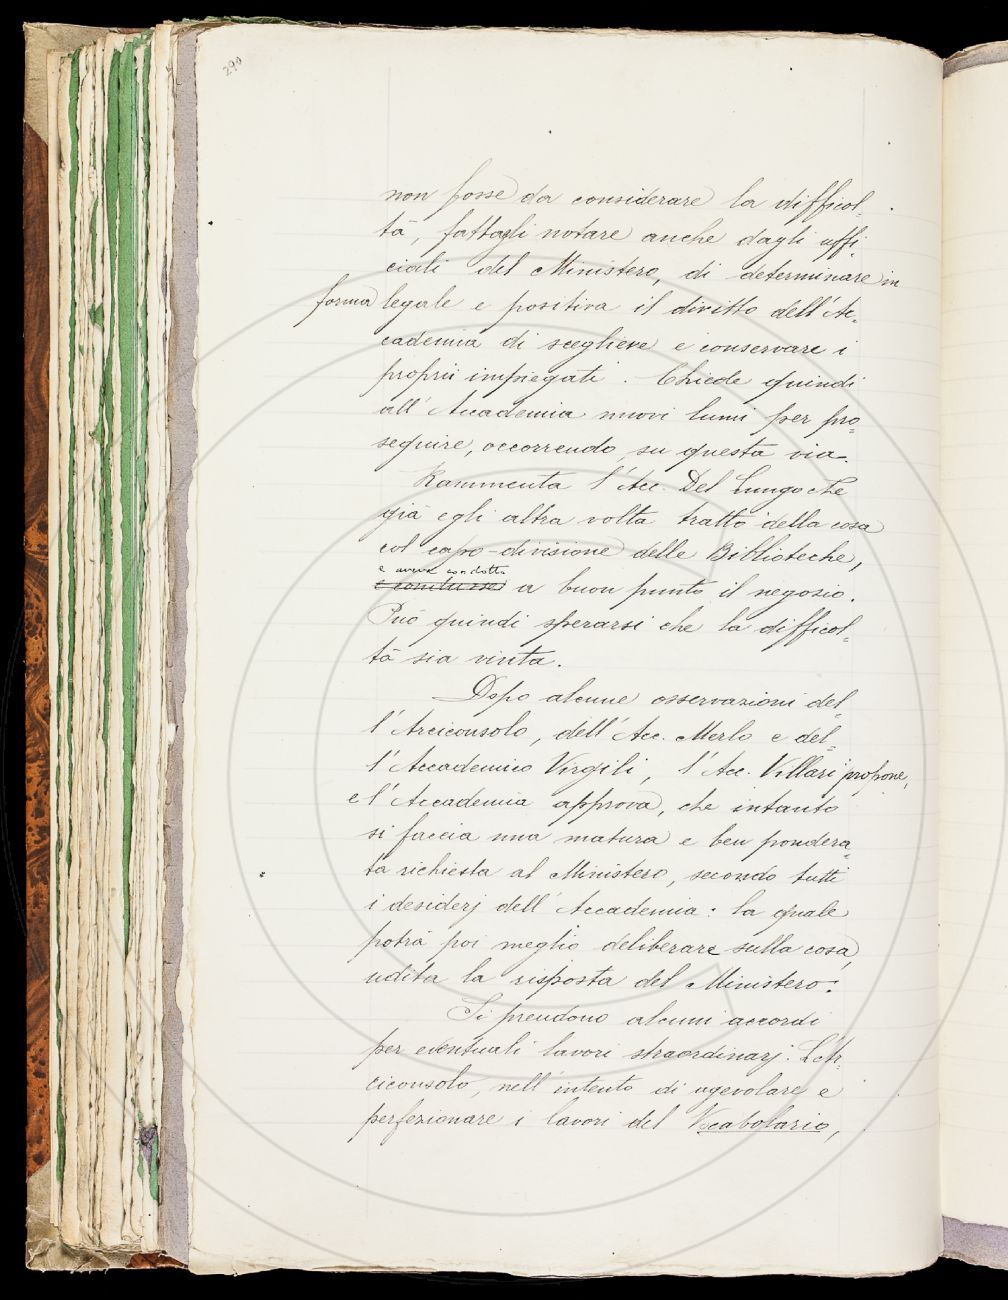 290
non fosse da considerare la difficol=
tà, fattagli notare anche dagli uffi=
ciali del Ministero, di determinare in
forma legale e positiva il diritto dell'Ac=
cademia di scegliere e conservare i
proprii impiegati. Chiede quindi
all'Accademia nuovi lumi per pro=
seguire, occorrendo, su questa via.
Rammenta l'Acc. Del Lungo che
già egli altra volta trattò della cosa
col capo-divisione delle Biblioteche,
e aveva condotto
e condusse a buon punto il negozio.
Può quindi sperarsi che la difficol=
tà sia vinta.
Dopo alcune osservazioni del=
l'Arciconsolo, dell'Acc. Merlo e del=
l'Accademico Virgili, l'Acc. Villari propone,
e l'Accademia approva, che intanto
si faccia una matura e ben pondera=
ta richiesta al Ministero, secondo tutti
i desiderj dell'Accademia: la quale
potrà poi meglio deliberare sulla cosa,
udita la risposta del Ministero.
Si prendono alcuni accordi
per eventuali lavori straordinarj. L'Ar=
ciconsolo, nell'intento di agevolare e
perfezionare i lavori del Vocabolario,